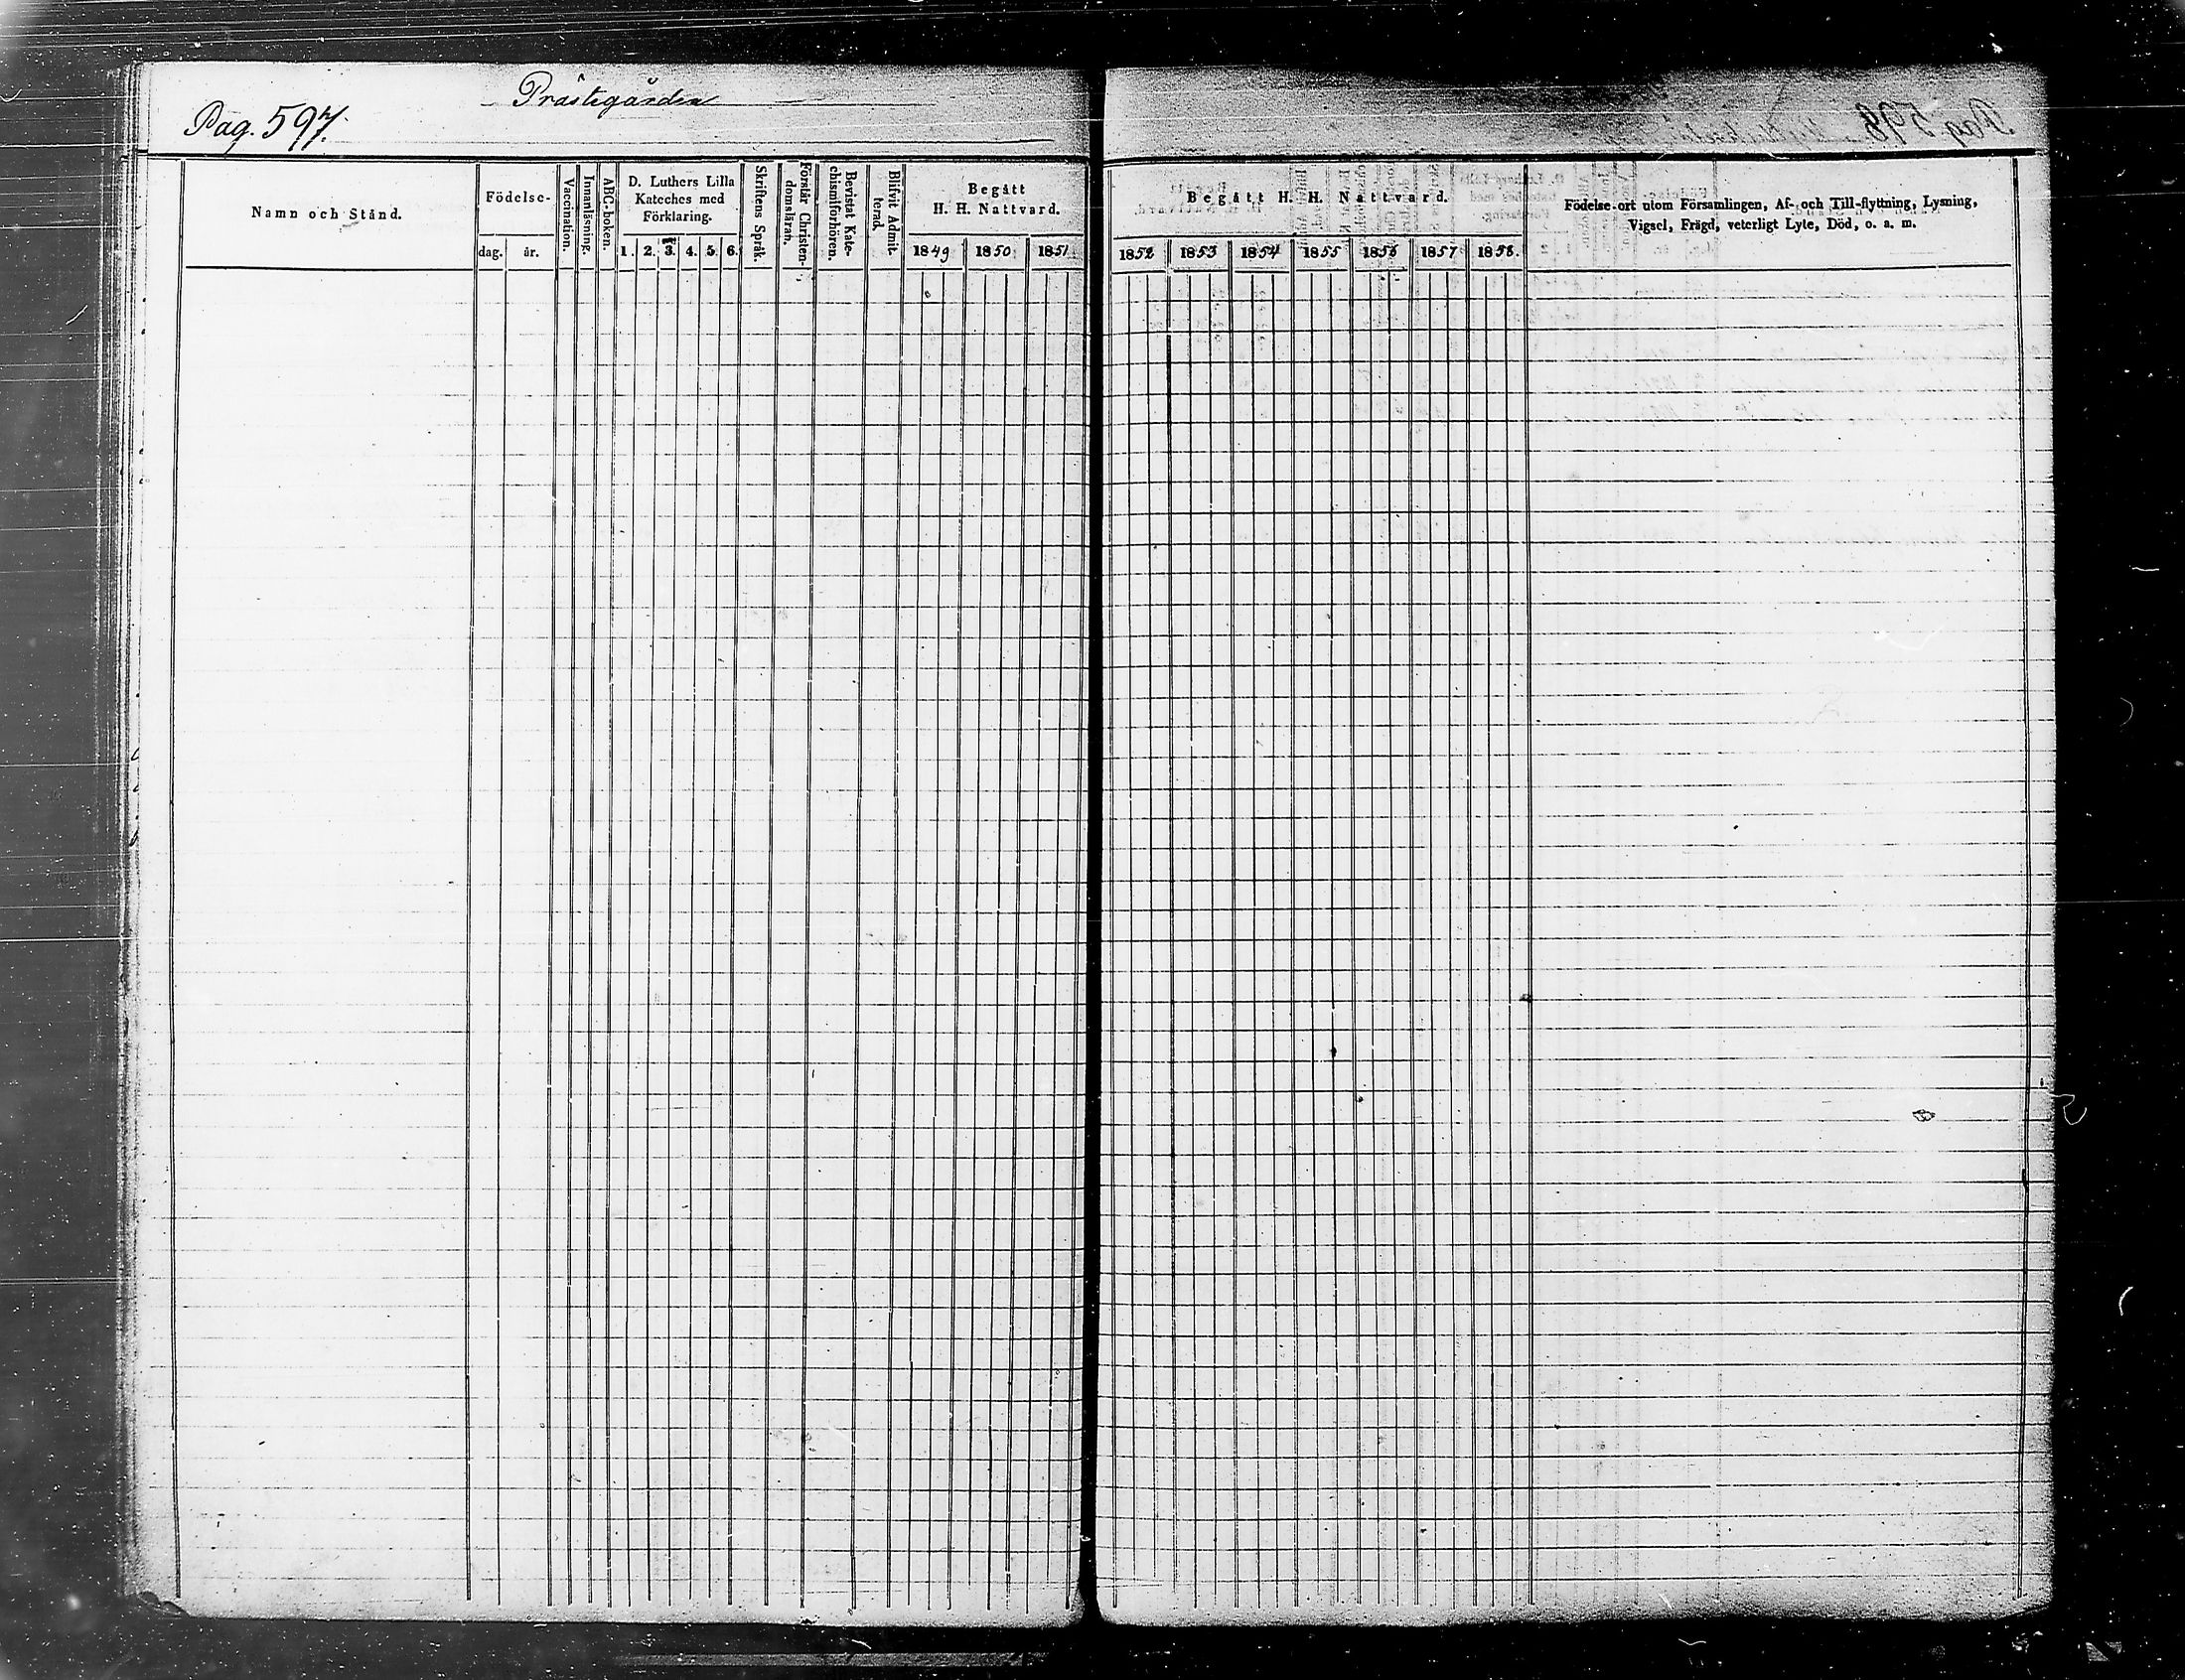 Prästegården
Pag. 597.
Namn och Stånd.
Födelse-
dag. år.
Vaccination.
Innanläsning.
ABC-boken.
D. Luthers Lilla
Kateches med
Förklaring.
1. 2. 3. 4. 5. 6.
Skriftens Språk.
Förstår Christen-
domsläran.
Bevistat Kate-
chismiförhören.
Blifvit Admit-
terad.
Begått
H. H. Nattvard.
1849 1850 1851
Begått H. H. Nattvard.
1852 1853 1854 1855 1856 1857 1858.
Födelse-ort utom Församlingen, Af- och Till-flyttning, Lysning,
Vigsel, Frägd, veterligt Lyte, Död, o. s. m.
Pag. 598.